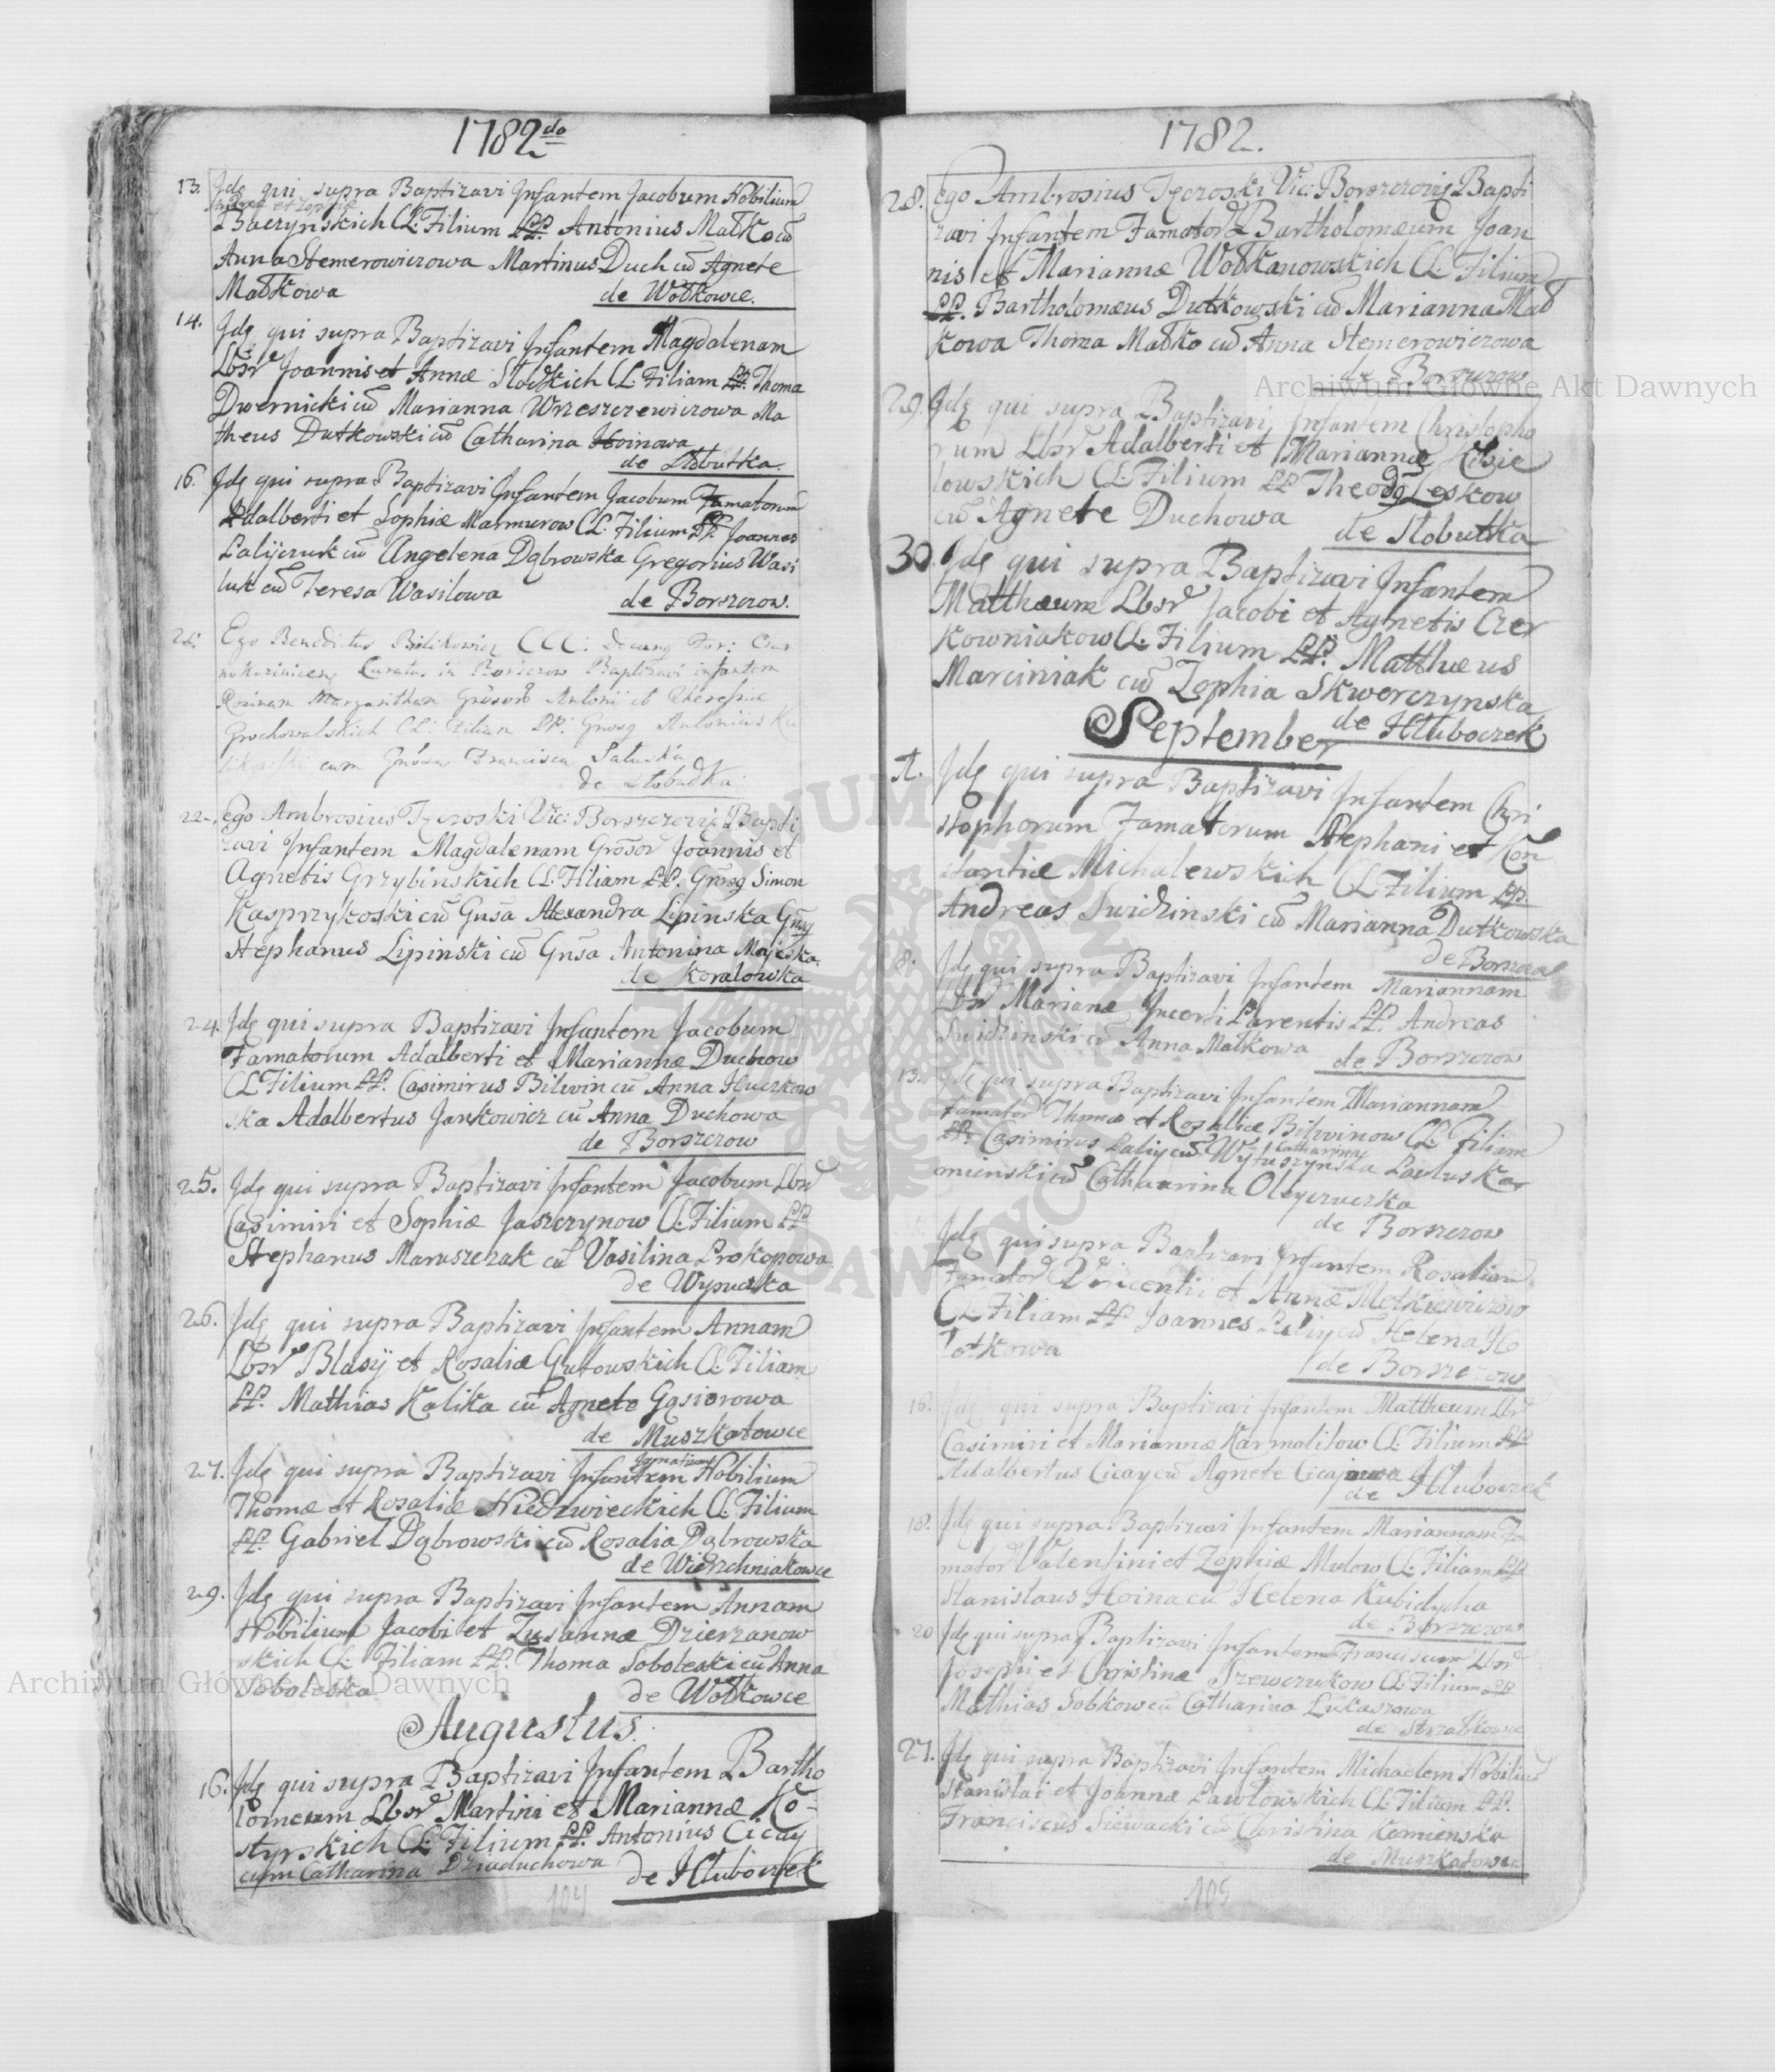 1782do
13. Jdę qui supra Baptizavi Infantem Jacobum Nobilium
Andreæ et Zophiæ
Baczynskich CL. Filium PP. Antonius Małko cū
Anna Stemerowiczowa Martinus Duch cū Agnete
Małkowa de Wołkowce.
14. Jdę qui supra Baptizavi Infantem Magdalenam
Lbsr Joannis et Annæ CL. Filiam PP. Thoma
Dwernicki cū Marianna Wrzeszczewiczowa Ma
theus Dutkowski cū Catharina Hoinowa
de Słobutka.
16. Jdę qui supra Baptizavi Infantem Jacobum Famatorum
Adalberti et Sophiæ Marmurow CL. Filium PP. Joannes
Paliyczuk cū Angelena Dąbrowska Gregorius Wasi
luk cū Teresa Wasilowa de Borszczow.
Ego Benedictus Bilikowicz CCC:
Curatus in Borszczow Baptizavi infantem
Margaritham Antonii et Theresiæ
Grochowalskich CL: Filiam PP: Antonius
cum Francisca
de Słobudka
22. Ego Ambrosius Tęczoski Vic: Borszczovij Bapti
zavi Infantem Magdalenam Grōsor Joannis et
Agnetis Grzybinskich CL. Filiam PP. Gnrsg Simon
Kasprzykoski cū Gnsa Alexandra Lipinska
Stephanus Lipinski cū Gnsa Antonina Majeska.
de Korolowka
24. Jdę qui supra Baptizavi Infantem Jacobum
Famatorum Adalberti et Mariannæ Duchow
CL Filium PP. Casimirus Bilwin cū Anna Huczkow
ska Adalbertus Jankowicz cū Anna Duchowa
de Borszczow
25. Jdę qui supra Baptizavi Infantem Jacobum Lbsr
Casimiri et Sophiæ Jaszczynow CL. Filium PP
Stephanus Maruszczak cū Vasilina Prokopowa
de Wysuczka
26. Jdę qui supra Baptizavi Infantem Annam
Lbsr Blasij et Rosaliæ Gutowskich CL. Filiam
PP. Mathias Kalika cū Agnete Gąsiorowa
de Muszkatowce
27. Jdę qui supra Baptizavi Infantem Nobilium
Thomæ et Rosaliæ Niedzwieckich CL. Filium
PP. Gabriel Dąbrowski cū Rosalia Dąbrowska
de Wierzchniakowce
29. Jdę qui supra Baptizavi Infantem Annam
Nobilium Jacobi et Zusannæ Dzierzanow
skich CL. Filiam PP. Thoma Soboleski cū Anna
Soboleska de Wołkowce
Augustus.
16. Jdę qui supra Baptizavi Infantem Bartho
lomeum Lbsr Martini et Mariannæ Ko-
styrskich CL. Filium PP. Antonius Cicay
cum Catharina Dziaduchowa de Hłuboczek
104
1782.
28. Ego Ambrosius Tęczoski Vic: Borszczovij Bapti
zavi Infantem Famator Bartholomæum Joan
nis et Mariannæ Wołkanowskich CL. Filium
PP. Bartholomæus Dutkowski cū Marianna Mał
kowa Thoma Małko cū Anna Stemerowiczowa
de Borszczow
29. Jdę qui supra Baptizavi Infantem Christopho
rum Lbsr Adalberti et Mariannæ Kisie
lowskich CL. Filium PP. Theodg Leskow
cū Agnete Duchowa de Słobutka
30. Jdę qui supra Baptizavi Infantem
Matthæum Lbsr Jacobi et Agnetis Czer
kowniakow CL. Filium PP. Matthæus
Marciniak cū Zophia Skworczynska
de Hłuboczek
September
1. Jdę qui supra Baptizavi Infantem Chri
stophorum Famatorum Stephani et Con
stantiæ Michalewskich CL Filium PP.
Andreas Swidzinski cū Marianna Dutkowska
de Borszczow
8. Jdę qui supra Baptizavi Infantem Mariannam
Lbsr Marianæ Incerti Parentis PP. Andreas
Swidzinski cū Anna Małkowa de Borszczow
13. Jdę qui supra Baptizavi Infantem Mariannam
Famator Thomæ et Rosaliæ Bilwinow CL. Filiam
PP. Casimirus Paliy cū Catharina Wytuszynska Pavlus Kar
mienski cū Catharina Oleyczuczka
de Borszczow
Jdę qui supra Baptizavi Infantem Rosaliam
Famator Vincentii et Annæ Metkiewiczow
CL. Filiam PP Joannes Paliy cū Helena Ho
łotkowa
de Borszczow
16. Jdę qui supra Baptizavi Infantem Mattheum Lbsr
Casimiri et Mariannæ Karmalitow CL. Filium PP
Adalbertus Cicay cū Agnete Cicajowa
de Hłuboczek
18. Jdę qui supra Baptizavi Infantem Mariannam Fa
mator Valentini et Zophiæ Mulow CL. Filiam PP
Stanislaus Hoina cū Helena Kubidycha
de Borszczow
20 Jdę qui supra Baptizavi Infantem Franciscum Lbsr
Josephi et Christinæ Szewczukow CL Filium PP
Mathias Sobkow cū Catharina Łukaszowa
de Strzałkowce
27. Jdę qui supra Baptizavi Infantem Michaelem Nobilium
Stanislai et Joannæ Pawłowskich CL Filium PP.
Franciscus Siewacki cū Christina Kamienska
de Muszkatowce
105
Archiwum Główne Akt Dawnych
Archiwum Główne Akt Dawnych